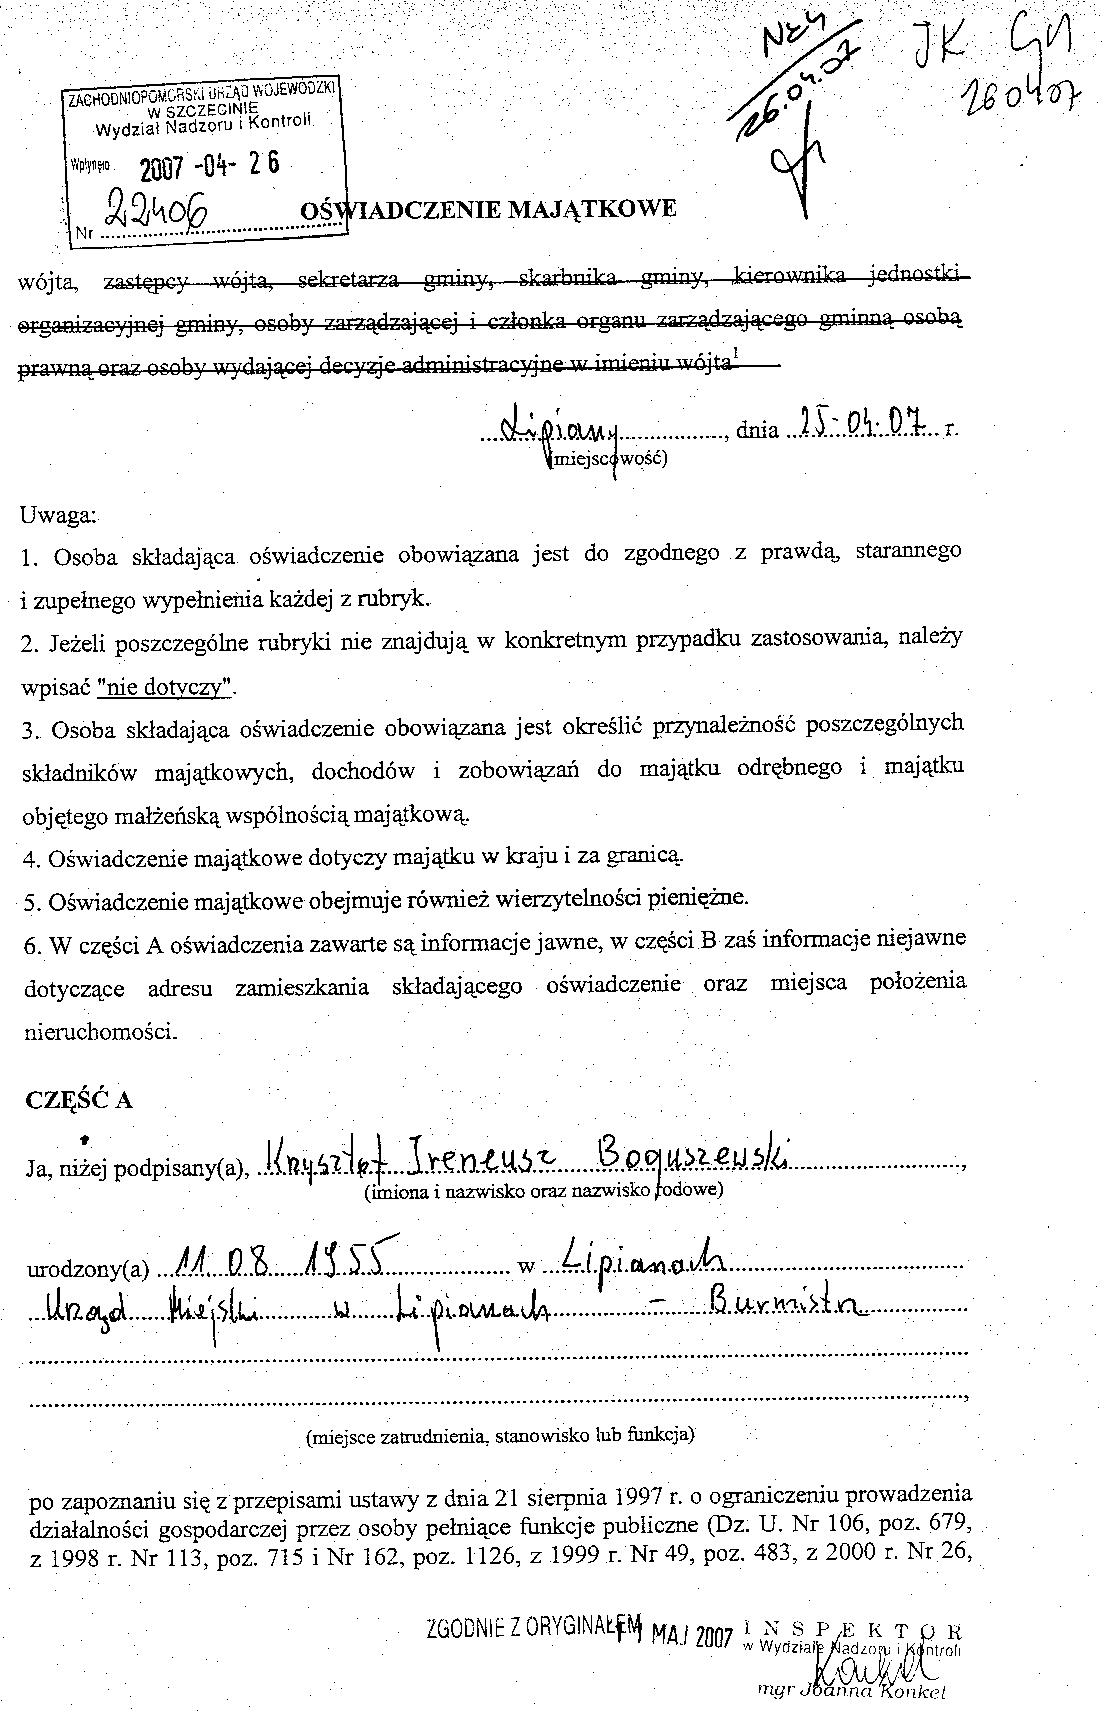 NK4
26.04.07
JK GM
260407
ZACHODNIOPOMORSKI URZĄD WOJEWÓDZKI
W SZCZECINIE
Wydział Nadzoru i Kontroli
Wpłynęło 2007 -04- 26
Nr 22406
OŚWIADCZENIE MAJĄTKOWE
wójta, zastępcy wójta, sekretarza gminy, skarbnika gminy, kierownika jednostki
organizacyjnej gminy, osoby zarządzającej i członka organu zarządzającego gminną osobą
prawną oraz osoby wydającej decyzje administracyjne w imieniu wójta¹
Lipiany, dnia 25.04.07. r.
(miejscowość)
Uwaga:
1. Osoba składająca oświadczenie obowiązana jest do zgodnego z prawdą, starannego
i zupełnego wypełnienia każdej z rubryk.
2. Jeżeli poszczególne rubryki nie znajdują w konkretnym przypadku zastosowania, należy
wpisać "nie dotyczy".
3. Osoba składająca oświadczenie obowiązana jest określić przynależność poszczególnych
składników majątkowych, dochodów i zobowiązań do majątku odrębnego i majątku
objętego małżeńską wspólnością majątkową.
4. Oświadczenie majątkowe dotyczy majątku w kraju i za granicą.
5. Oświadczenie majątkowe obejmuje również wierzytelności pieniężne.
6. W części A oświadczenia zawarte są informacje jawne, w części B zaś informacje niejawne
dotyczące adresu zamieszkania składającego oświadczenie oraz miejsca położenia
nieruchomości.
CZĘŚĆ A
Ja, niżej podpisany(a), Krzysztof Ireneusz Boguszewski,
(imiona i nazwisko oraz nazwisko rodowe)
urodzony(a) 11 08 1955 w Lipianach
Urząd Miejski w Lipianach - Burmistrz
(miejsce zatrudnienia, stanowisko lub funkcja)
po zapoznaniu się z przepisami ustawy z dnia 21 sierpnia 1997 r. o ograniczeniu prowadzenia
działalności gospodarczej przez osoby pełniące funkcje publiczne (Dz. U. Nr 106, poz. 679,
z 1998 r. Nr 113, poz. 715 i Nr 162, poz. 1126, z 1999 r. Nr 49, poz. 483, z 2000 r. Nr 26,
ZGODNIE Z ORYGINAŁEM MAJ 2007 INSPEKTOR
w Wydziale Nadzoru i Kontroli
Konkel
mgr Joanna Konkel